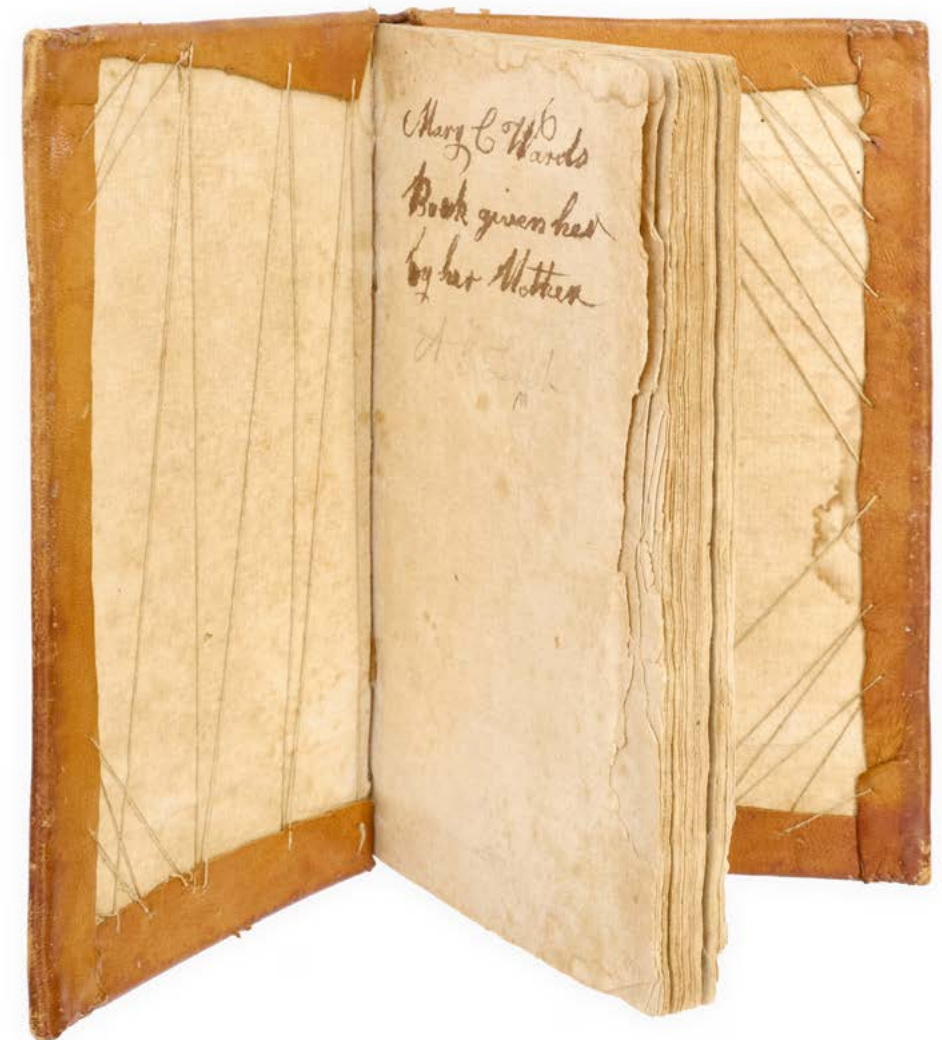 Mary C Wards
Book given her
by her Mother